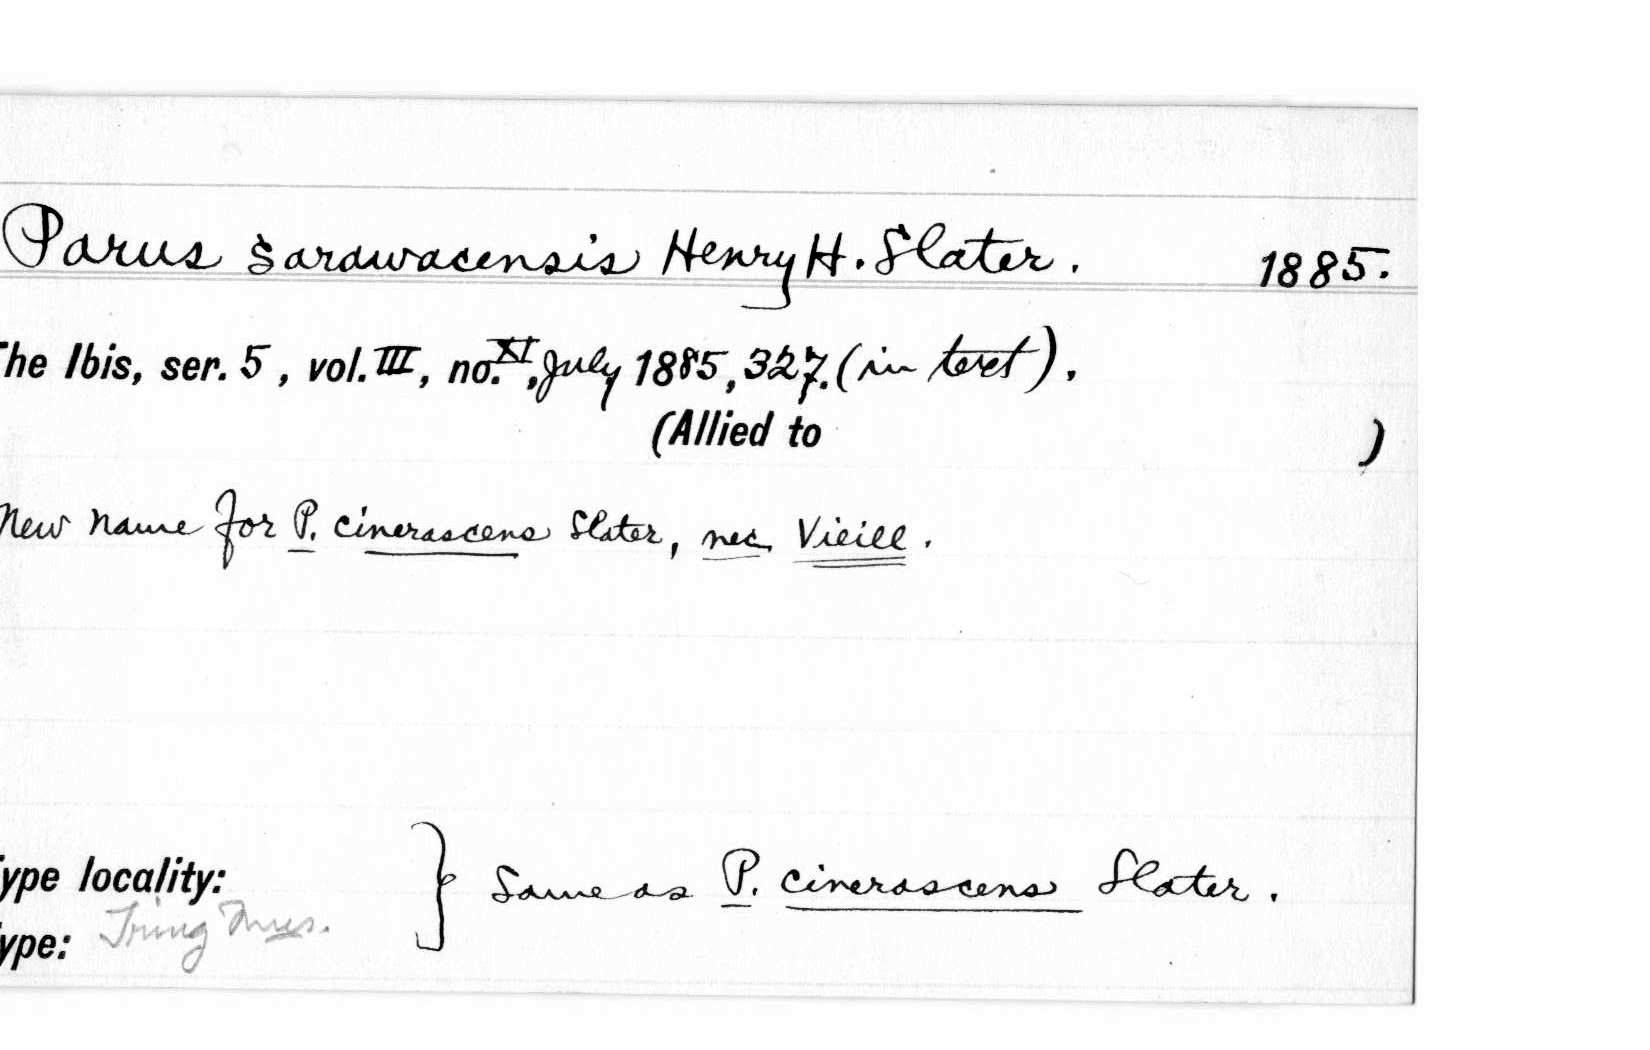 Parus sarawacensis Henry H. Slater. 1885.
The Ibis, ser. 5, vol. III, no. XI, July 1885, 327. (in text).
(Allied to )
New name for P. cinerascens Slater, nec Vieill.
Type locality: } Same as P. cinerascens Slater.
Type: Tring Mus.